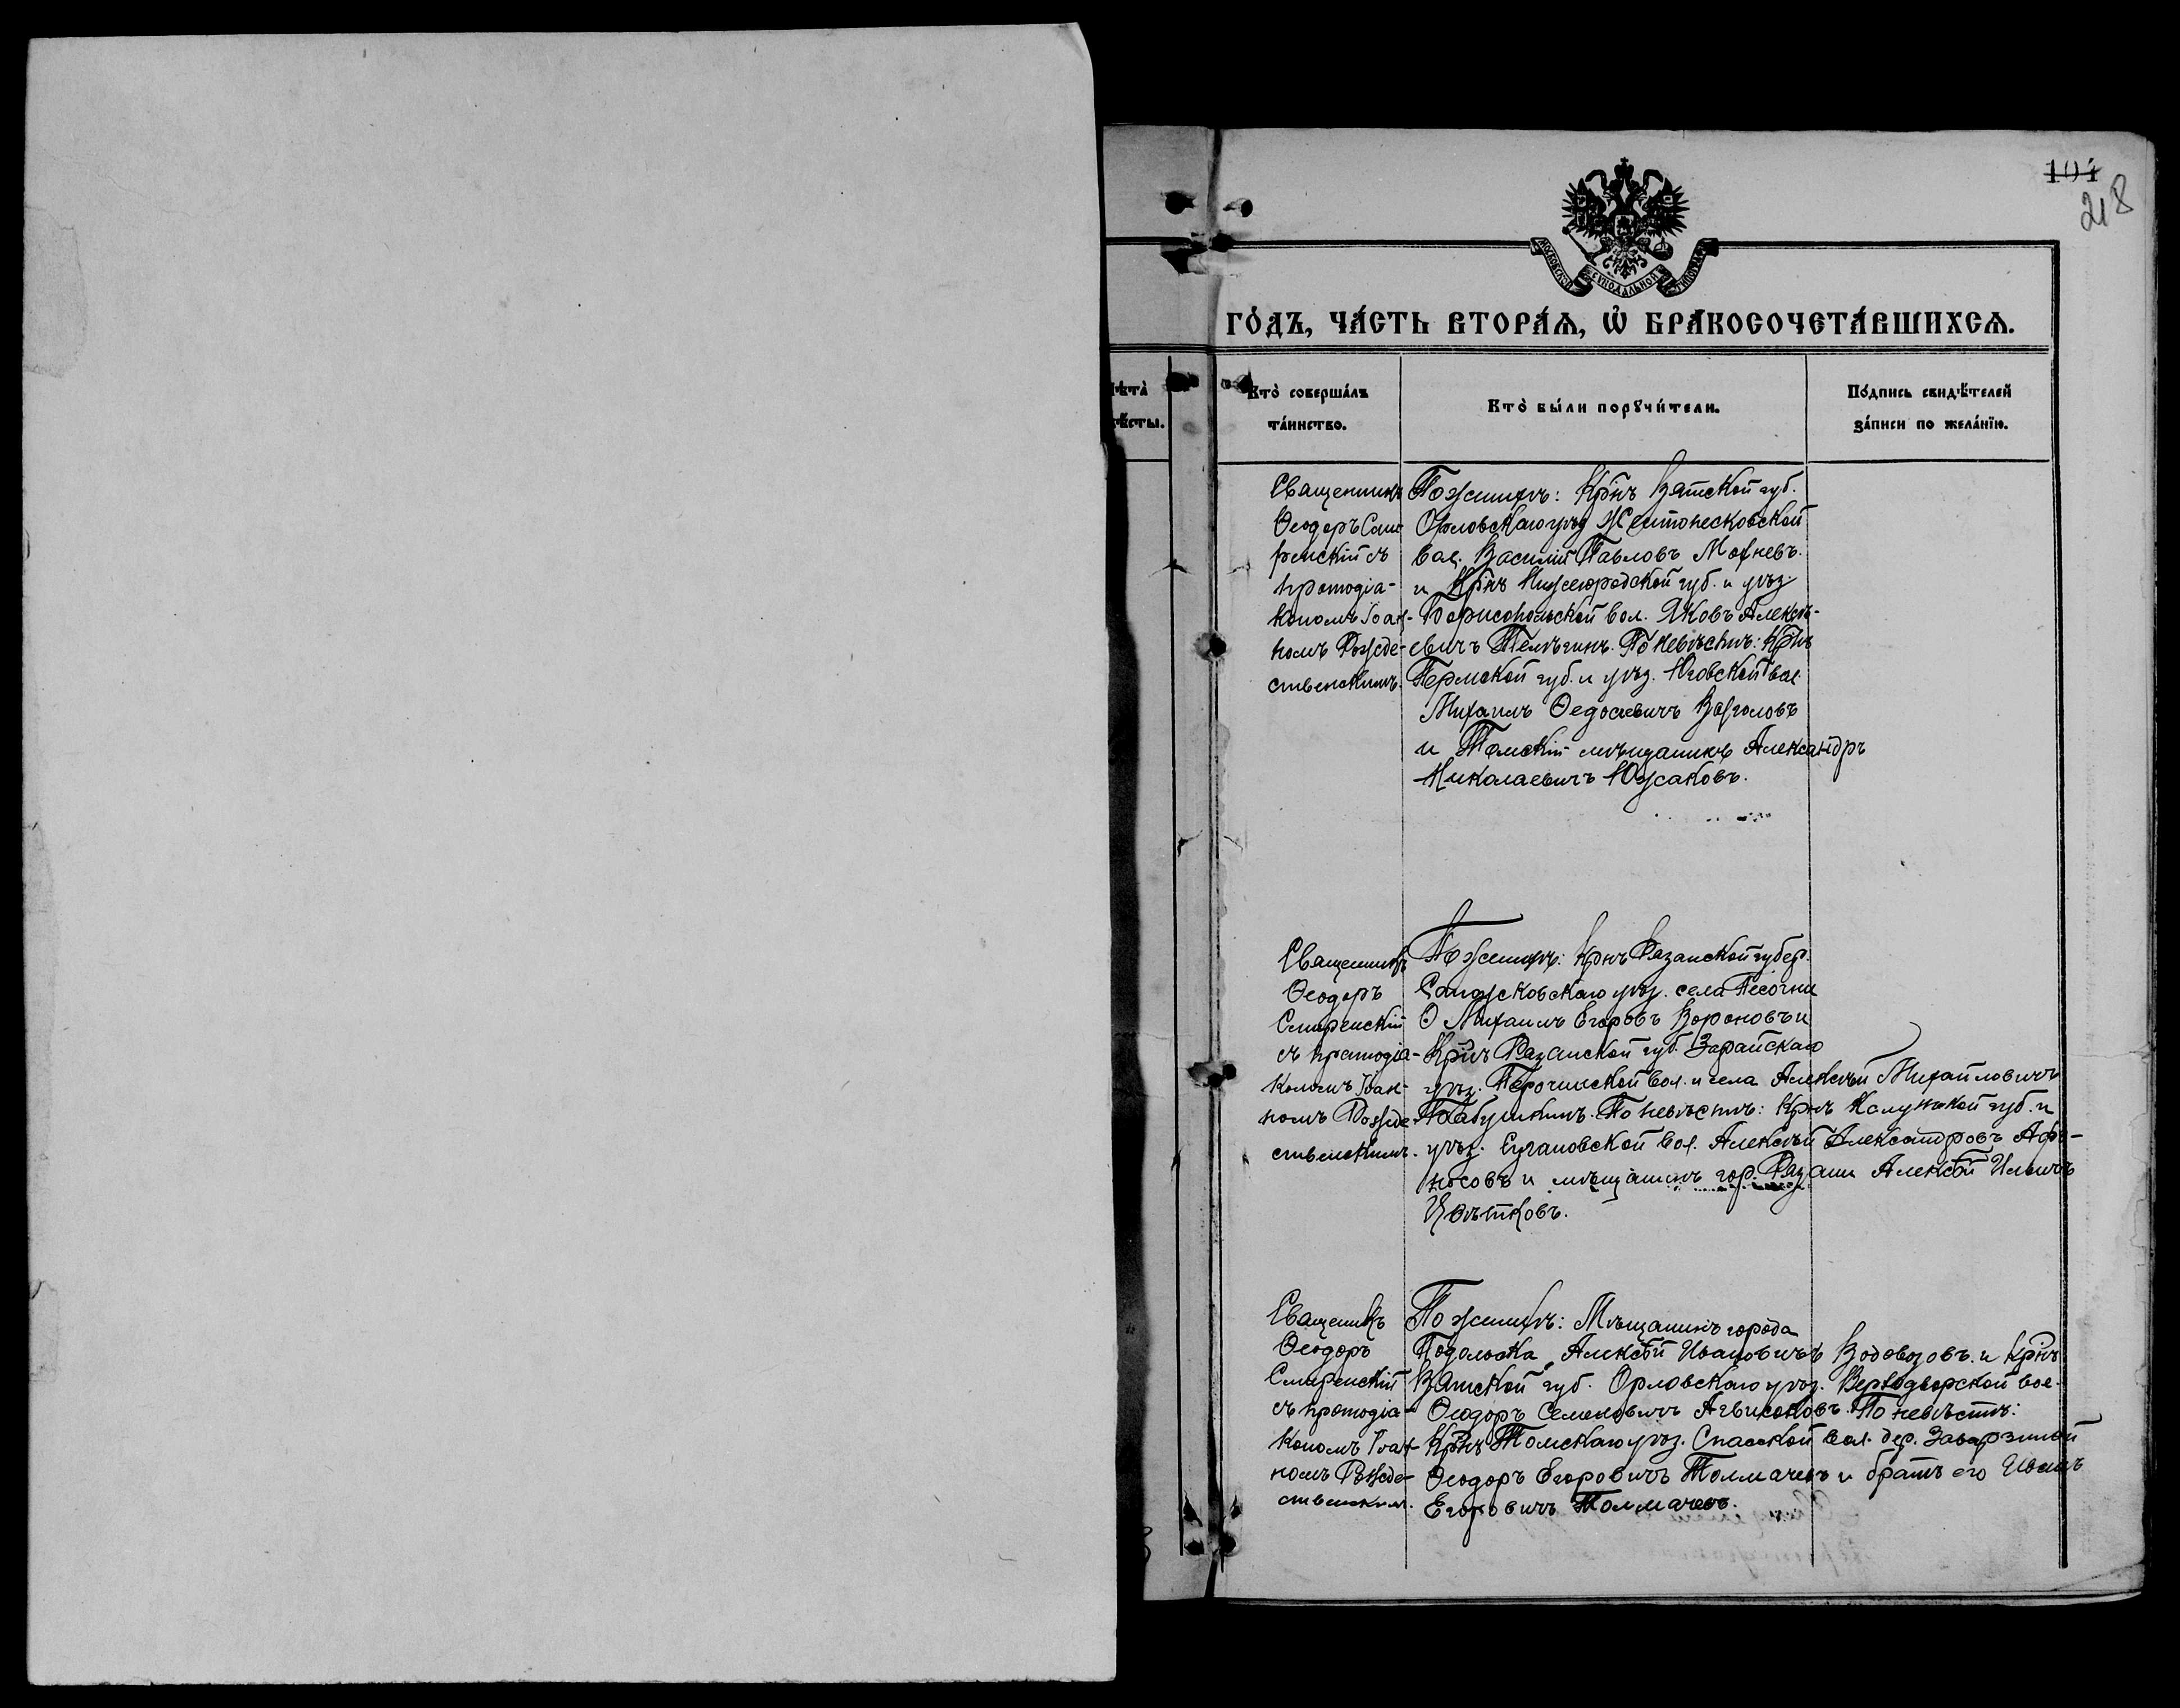 104
218
МОСКОВСКОЙ СѴНОДАЛЬНОЙ ТИПОГРАФІИ
ГО́ДЪ, ЧА́СТЬ ВТОРА́Ѧ, Ѽ БРАКОСОЧЕТА́ВШИХСѦ.
Кто̀ соверша́лъ
та́инство.
Кто̀ бы́ли порꙋчи́тели.
По́дпись свидѣ́телей
за́писи по жела́нїю.
Священникъ
Ѳеодоръ Сми
ренскій съ
протодіа-
кономъ Іоан-
номъ Рожде-
ственскимъ.
По женихѣ: Крнъ Вятской губ.
Орловскаго уѣз.
вол. Василій Павловъ
и Крнъ Нижегородской губ. и уѣз.
Борисопольской вол. Яковъ Алексѣ-
евичъ По невѣстѣ: Крнъ
Пермской губ. и уѣз. Юговской вол.
Михаилъ Ѳедосіевичъ
и Томскій мѣщанинъ Александръ
Николаевичъ Южаковъ.
Священникъ
Ѳеодоръ
Смиренскій
съ протодіа-
кономъ Іоан-
номъ Рожде-
ственскимъ.
По женихѣ: Крнъ Рязанской губер.
Сапожковскаго уѣз. села Песочни
Михаилъ Егоровъ Вороновъ и
Крнъ Рязанской губ. Зарайскаго
уѣз. вол. и села Алексѣй Михайловичъ
По невѣстѣ: Крнъ Калужской губ. и
уѣз. вол. Алексѣй Александровъ Афо-
носовъ и мѣщанинъ гор. Рязани Алексѣй Ильичъ
Цвѣтковъ.
Священикъ
Ѳеодоръ
Смиренскій
съ протодіа-
кономъ Іоан-
номъ Рожде-
ственским.
По женихѣ: Мѣщанинъ города
Подольска Алексѣй Ивановичъ Водовозовъ. и Крнъ
Вятской губ. Орловскаго уѣз. Верходворской вол.
Ѳеодоръ Семеновичъ По невѣстѣ:
Крнъ Томскаго уѣз. Спасской вол. дер. Заварзиной
Ѳеодоръ Егоровичъ Толмачевъ и братъ его Иванъ
Егоровичъ Толмачевъ.